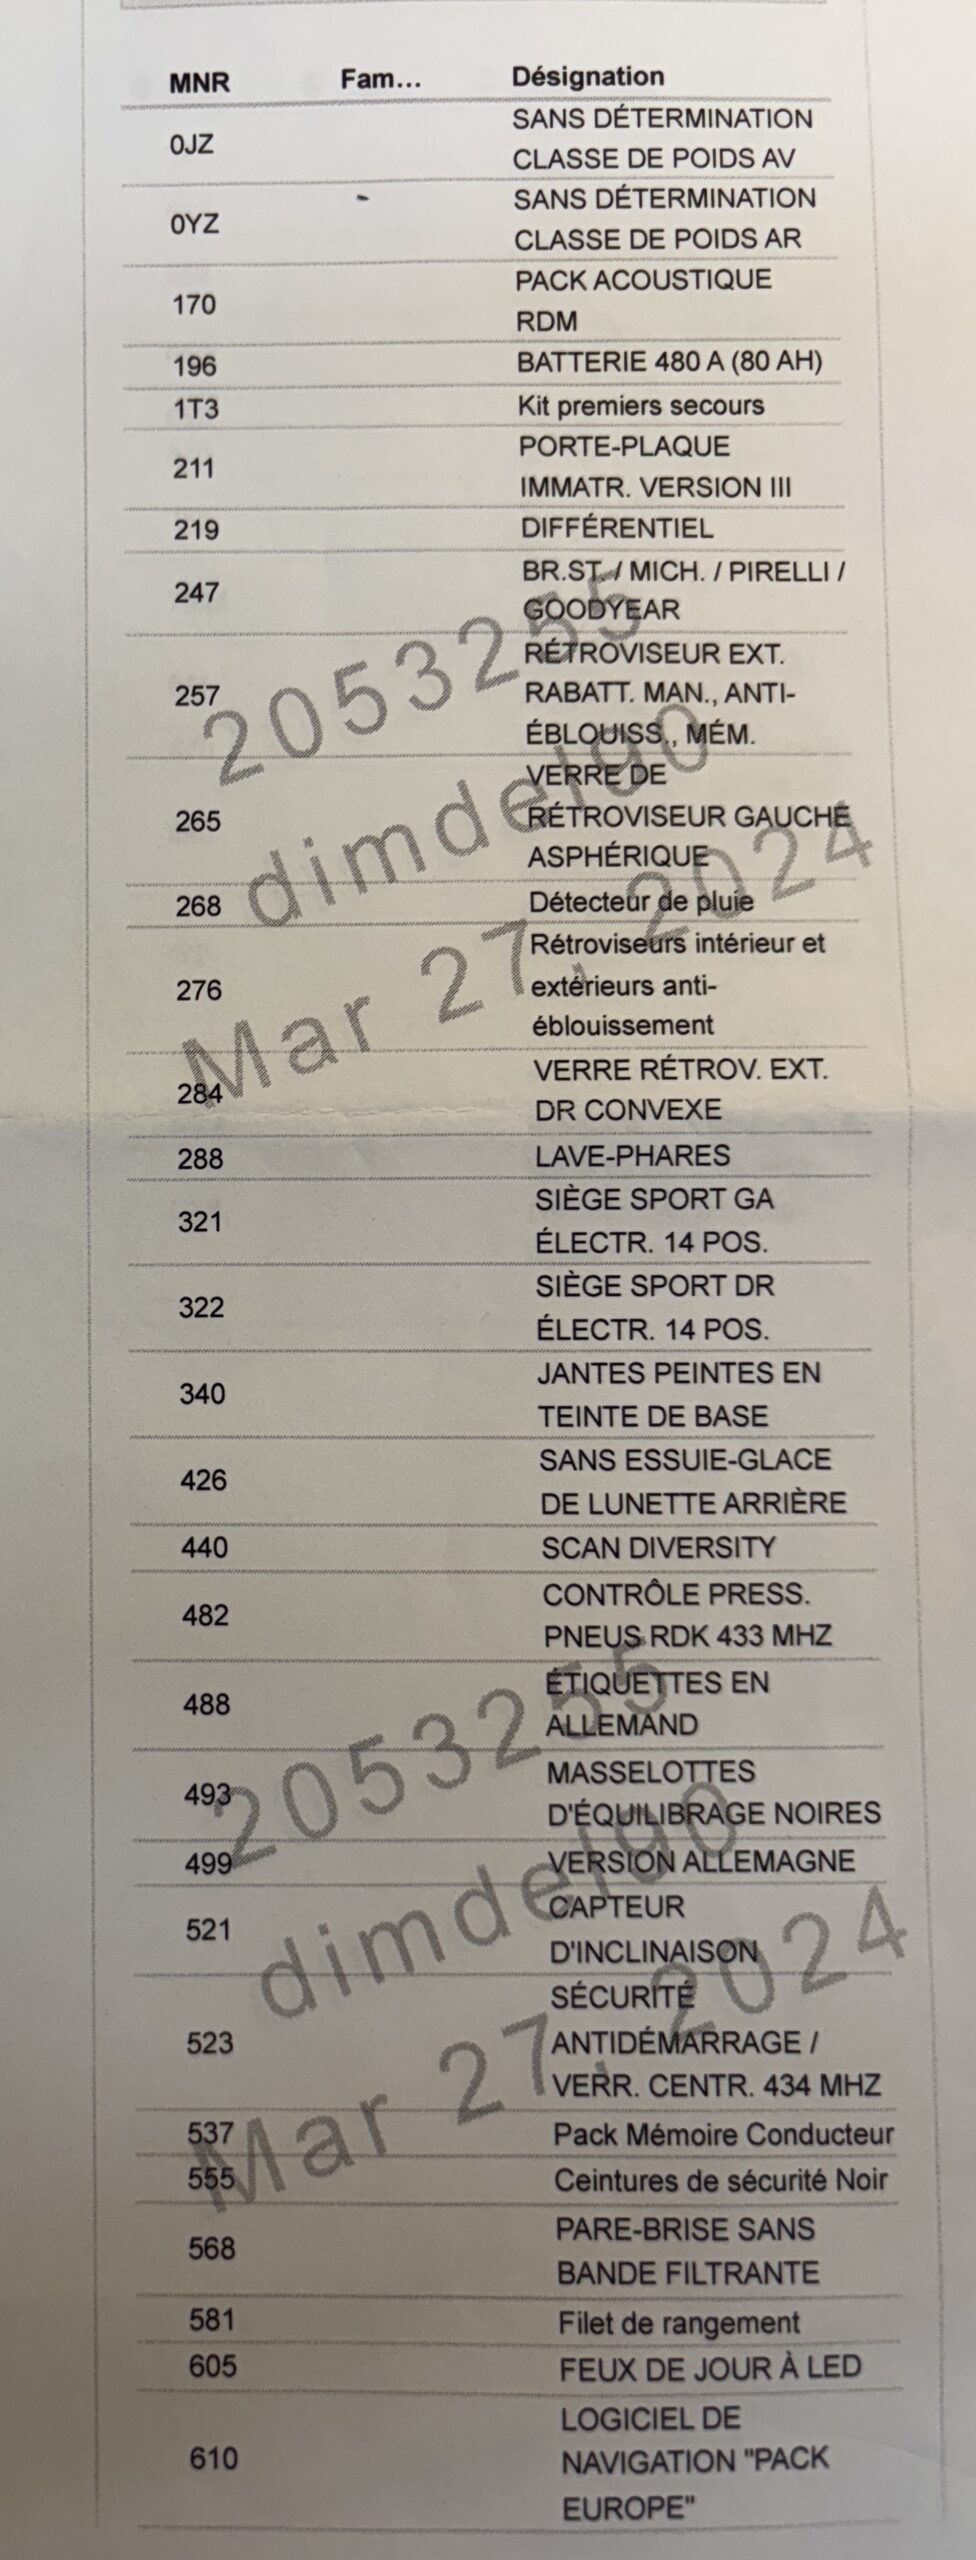 MNR Fam... Désignation
0JZ SANS DÉTERMINATION
CLASSE DE POIDS AV
0YZ SANS DÉTERMINATION
CLASSE DE POIDS AR
170 PACK ACOUSTIQUE
RDM
196 BATTERIE 480 A (80 AH)
1T3 Kit premiers secours
211 PORTE-PLAQUE
IMMATR. VERSION III
219 DIFFÉRENTIEL
247 BR.ST. / MICH. / PIRELLI /
GOODYEAR
257 RÉTROVISEUR EXT.
RABATT. MAN., ANTI-
ÉBLOUISS., MÉM.
265 VERRE DE
RÉTROVISEUR GAUCHE
ASPHÉRIQUE
268 Détecteur de pluie
276 Rétroviseurs intérieur et
extérieurs anti-
éblouissement
284 VERRE RÉTROV. EXT.
DR CONVEXE
288 LAVE-PHARES
321 SIÈGE SPORT GA
ÉLECTR. 14 POS.
322 SIÈGE SPORT DR
ÉLECTR. 14 POS.
340 JANTES PEINTES EN
TEINTE DE BASE
426 SANS ESSUIE-GLACE
DE LUNETTE ARRIÈRE
440 SCAN DIVERSITY
482 CONTRÔLE PRESS.
PNEUS RDK 433 MHZ
488 ÉTIQUETTES EN
ALLEMAND
493 MASSELOTTES
D'ÉQUILIBRAGE NOIRES
499 VERSION ALLEMAGNE
521 CAPTEUR
D'INCLINAISON
523 SÉCURITÉ
ANTIDÉMARRAGE /
VERR. CENTR. 434 MHZ
537 Pack Mémoire Conducteur
555 Ceintures de sécurité Noir
568 PARE-BRISE SANS
BANDE FILTRANTE
581 Filet de rangement
605 FEUX DE JOUR À LED
610 LOGICIEL DE
NAVIGATION "PACK
EUROPE"
2053255
dimdelgo
Mar 27, 2024
2053255
dimdelgo
Mar 27, 2024